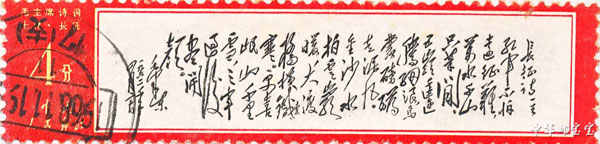 毛主席诗词
七律·长征
4分
1968.11.15
长征诗一首
红军不怕
远征难
万水千山
只等闲
五岭逶迤
腾细浪乌
蒙磅礴
走泥丸
金沙水
拍云崖
暖大渡
桥横铁索
寒更喜
岷山千里
雪三军
过后
尽开
颜
毛泽东